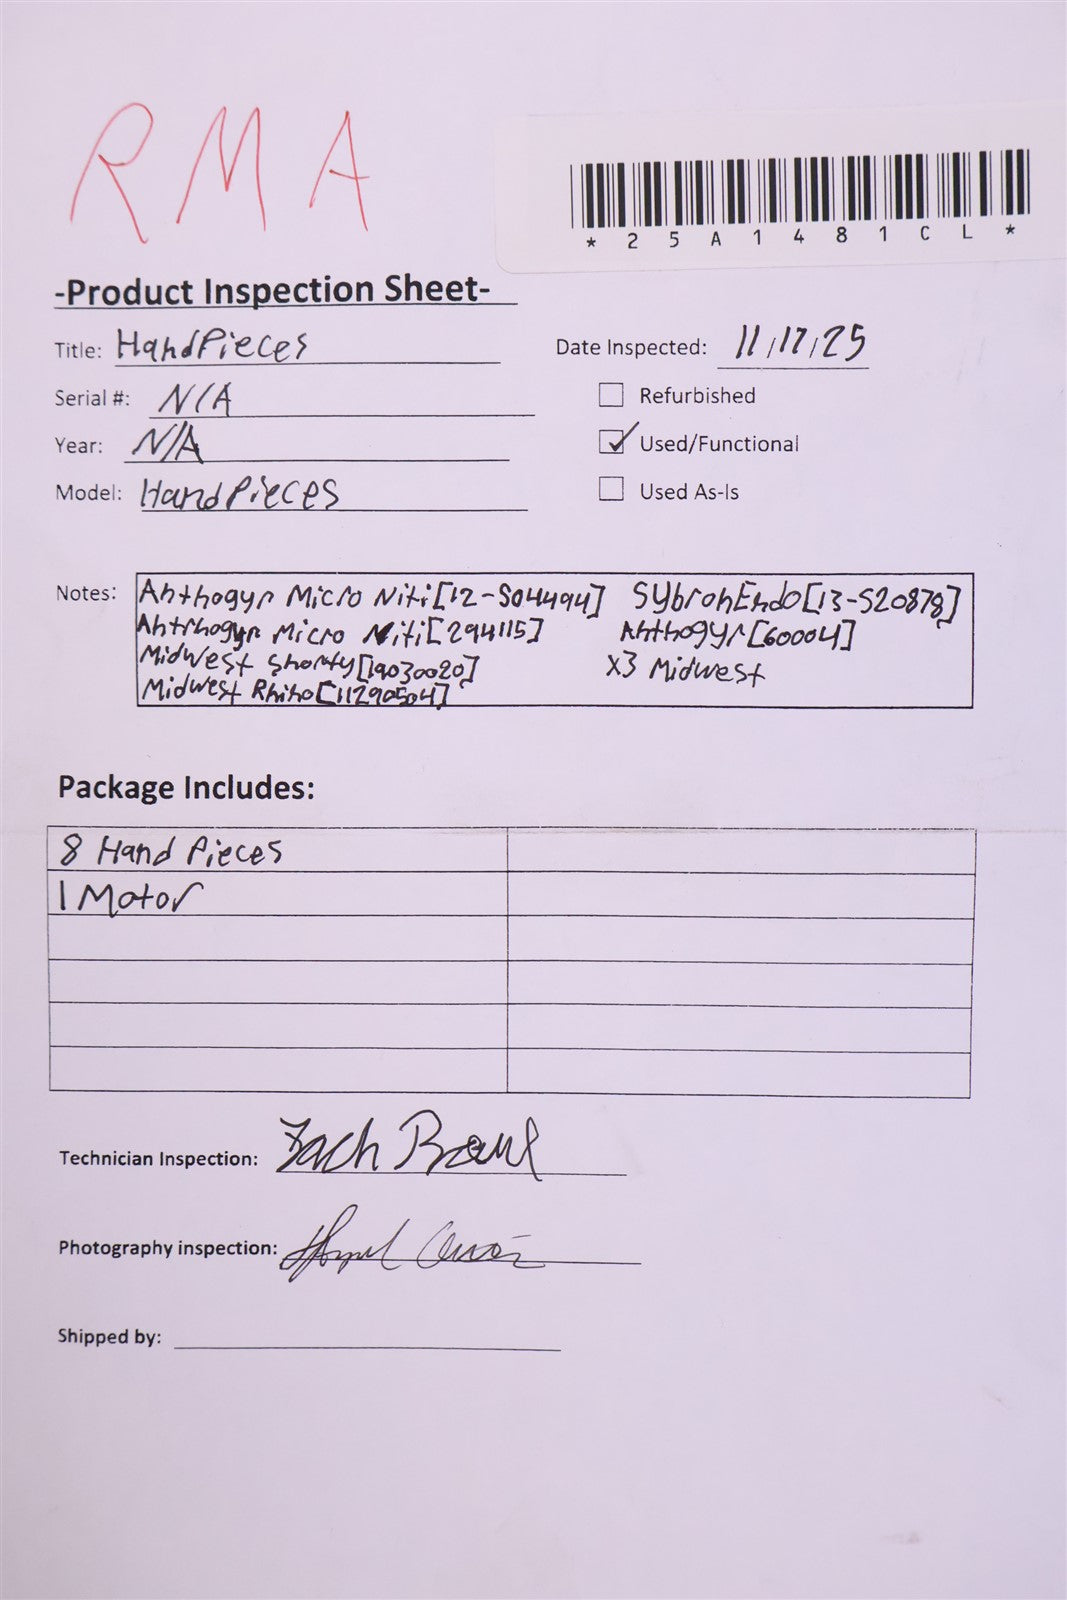 RMA
*25A1481CL*
-Product Inspection Sheet-
Title: HandPieces
Date Inspected: 11/17/25
Serial #: N/A
Refurbished
Year: N/A
Used/Functional
Model: HandPieces
Used As-Is
Notes: Anthogyr Micro Niti[12-S04494] SybronEndo[13-S20878]
Anthogyr Micro Niti[294115] Anthogyr[60004]
Midwest Shorty[19030020] x3 Midwest
Midwest Rhino[11290504]
Package Includes:
8 Hand Pieces
1 Motor
Technician Inspection: Zach
Photography inspection:
Shipped by: